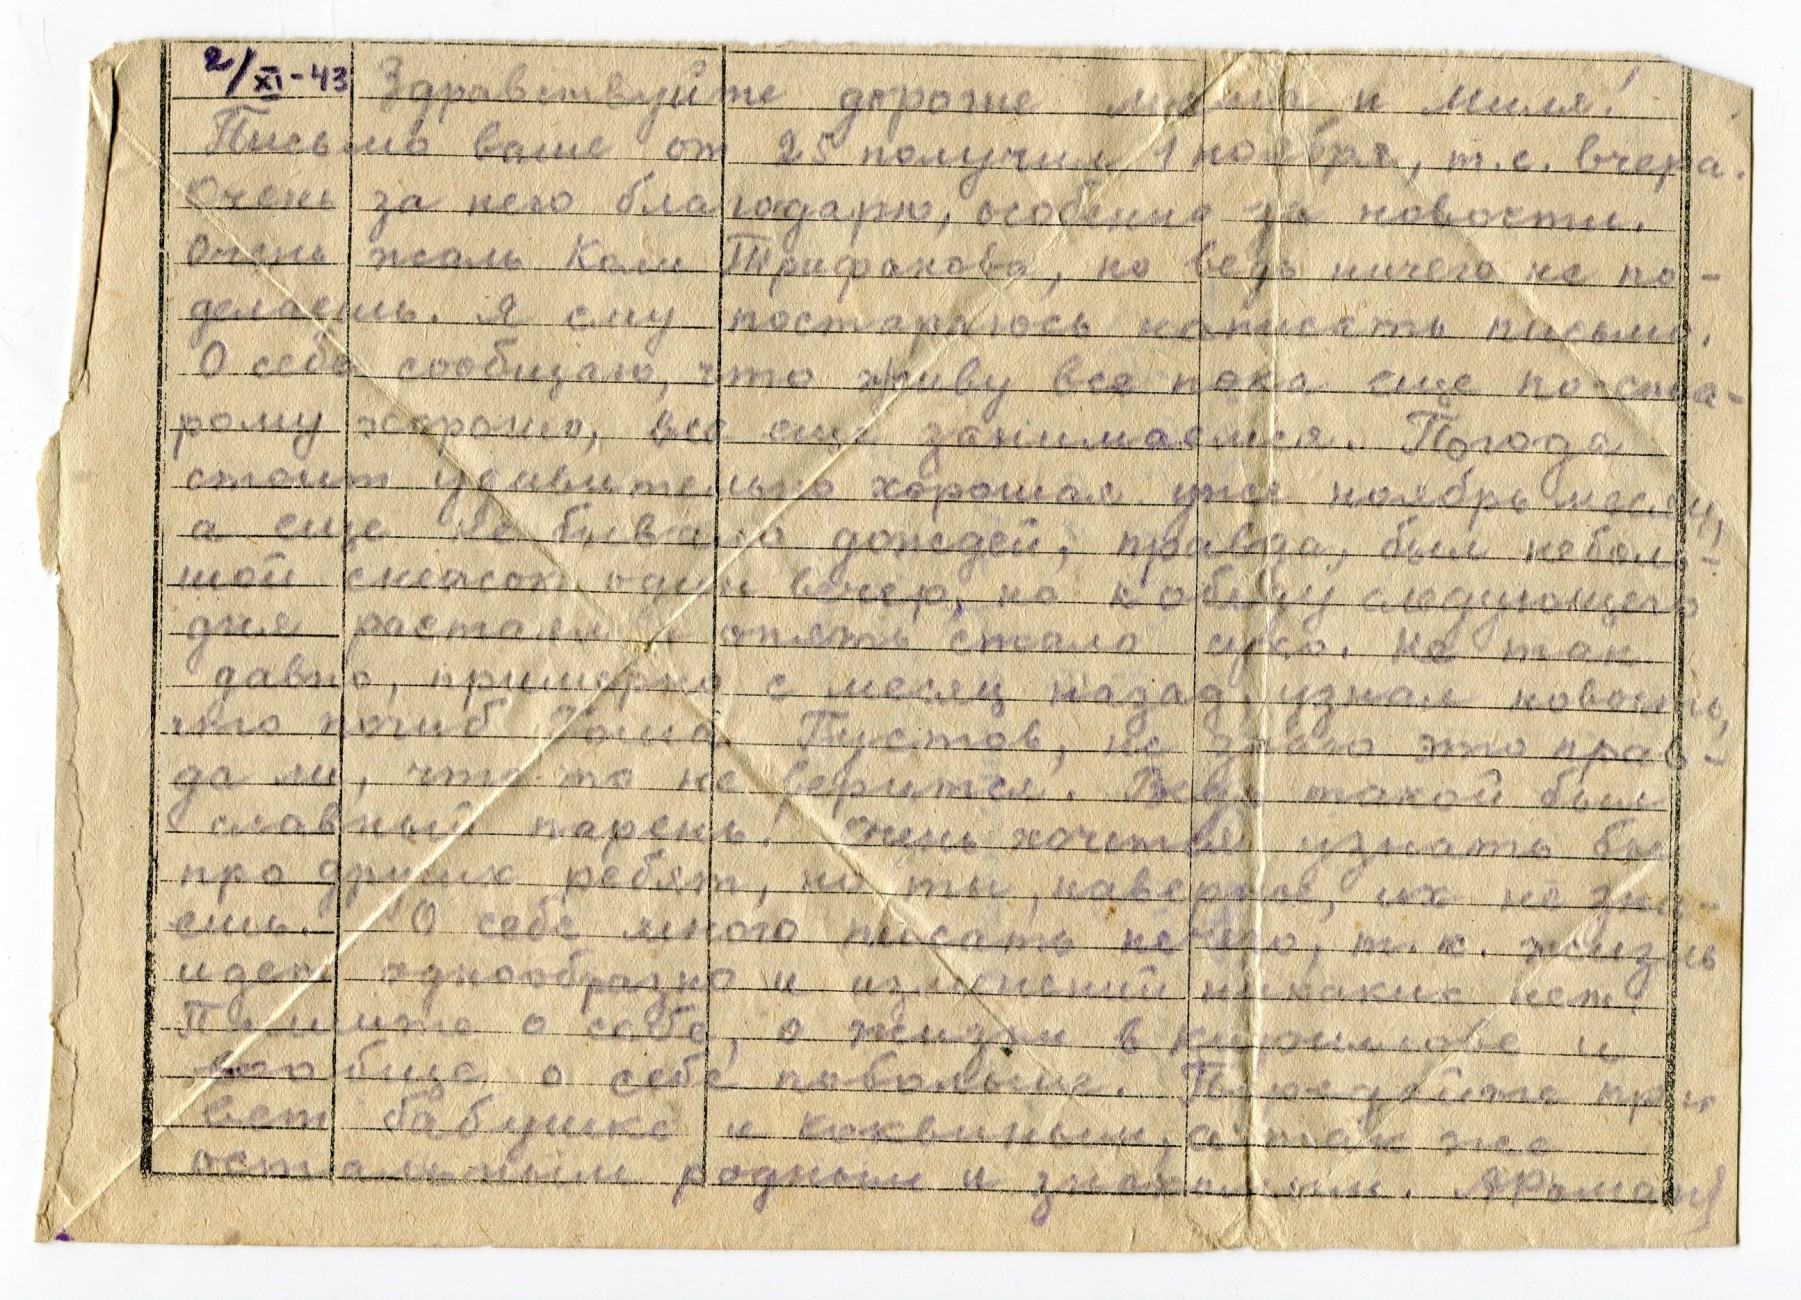 2/XI-43 Здравствуйте дорогие мама и Миля!
Письмо ваше от 25 получил 1 ноября, т.е. вчера.
Очень за него благодарю, особенно за новости.
Очень жаль Колю Трифанова, но ведь ничего не по-
делаешь. Я ему постараюсь написать письмо.
О себе сообщаю, что живу все пока еще по-ста-
рому хорошо, все еще занимаемся. Погода
стоит удивительно хорошая уже ноябрь месяц,
а еще не бывало дождей, правда, был неболь-
шой снежок один вечер, но к обеду следующего
дня растаял и опять стало сухо. Не так
давно, примерно с месяц назад, узнал новость,
что погиб Пустов, не знаю это прав-
да ли, что-то не верится. Ведь такой был
славный парень! Очень хочется узнать бы
про других ребят, но ты, наверное, их не зна-
ешь. О себе много писать нечего, т.к. жизнь
идет однообразно и изменений никаких нет.
Пишите о себе, о жизни в Кириллове и
вообще о себе побольше. Передайте при
вет бабушке и а так же
остальным родным и знакомым.